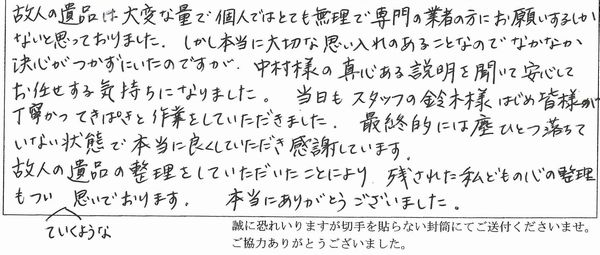 故人の遺品は大変な量で個人ではとても無理で専門の業者の方にお願いするしか
ないと思っておりました。しかし本当に大切な思い入れのあることなのでなかなか
決心がつかずにいたのですが、中村様の真心ある説明を聞いて安心して
お任せする気持ちになりました。当日もスタッフの鈴木様はじめ皆様が
丁寧かつてきぱきと作業をしていただきました。最終的には塵ひとつ落ちて
いない状態で本当に良くしていただき感謝しています。
故人の遺品の整理をしていただいたことにより、残された私どもの心の整理
もつい思いでおります。本当にありがとうございました。
ていくような
誠に恐れいりますが切手を貼らない封筒にてご送付くださいませ。
ご協力ありがとうございました。